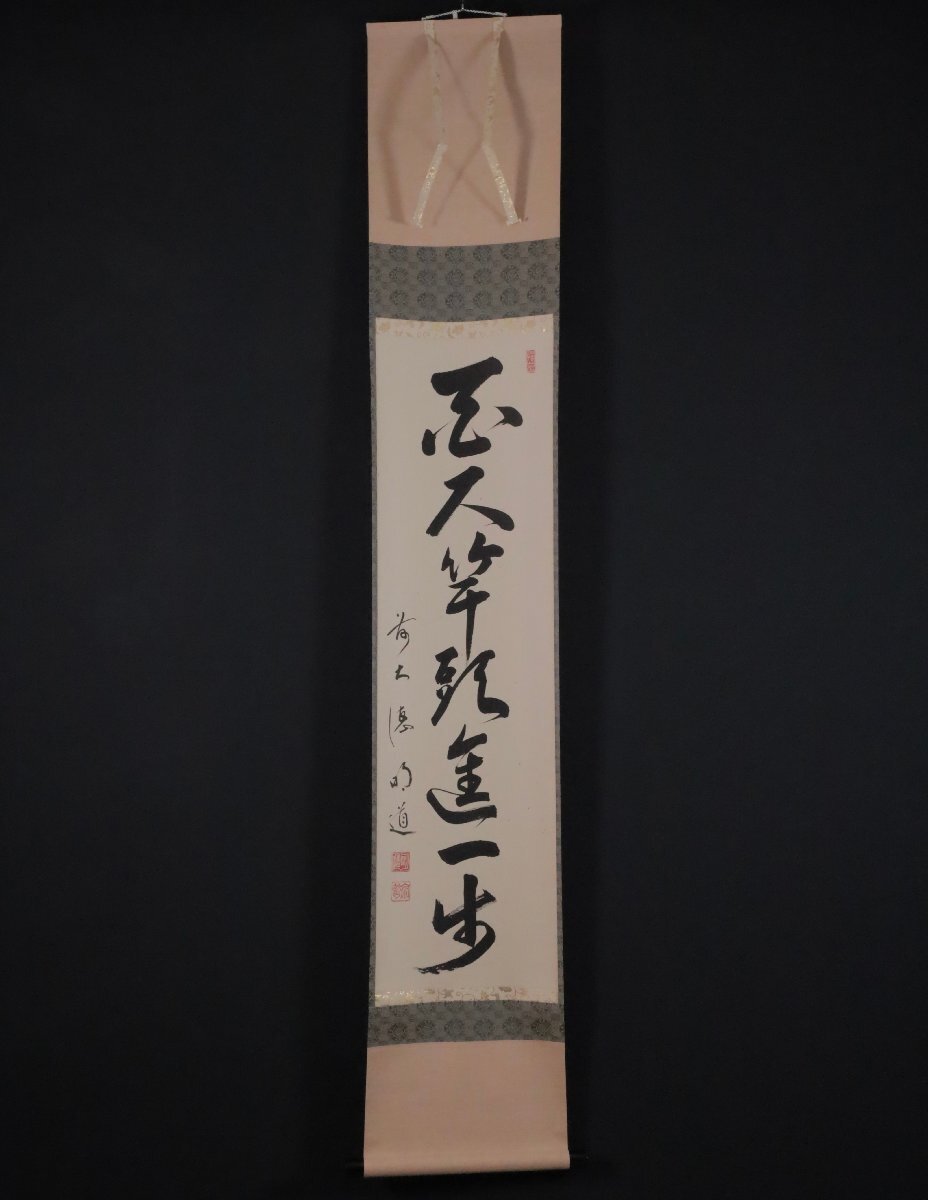 百尺竿頭進一歩
前大徳明道